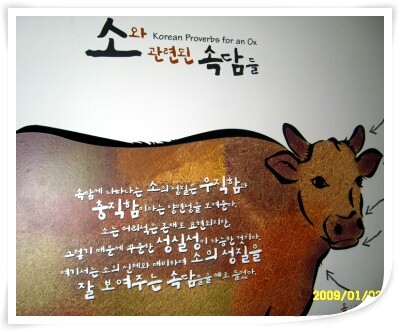 소와
Korean Proverbs for an Ox
관련된 속담들
속담에 나타나는 소의 성질은 우직함과
충직함이라는 양면성을 보여준다.
소는 어리석은 존재로 표현되지만,
그렇기 때문에 꾸준한 성실성이 가능한 것이다.
여기서는 소의 신체와 대비하여 소의 성질을
잘 보여주는 속담들을 예로 들었다.
2009/01/02